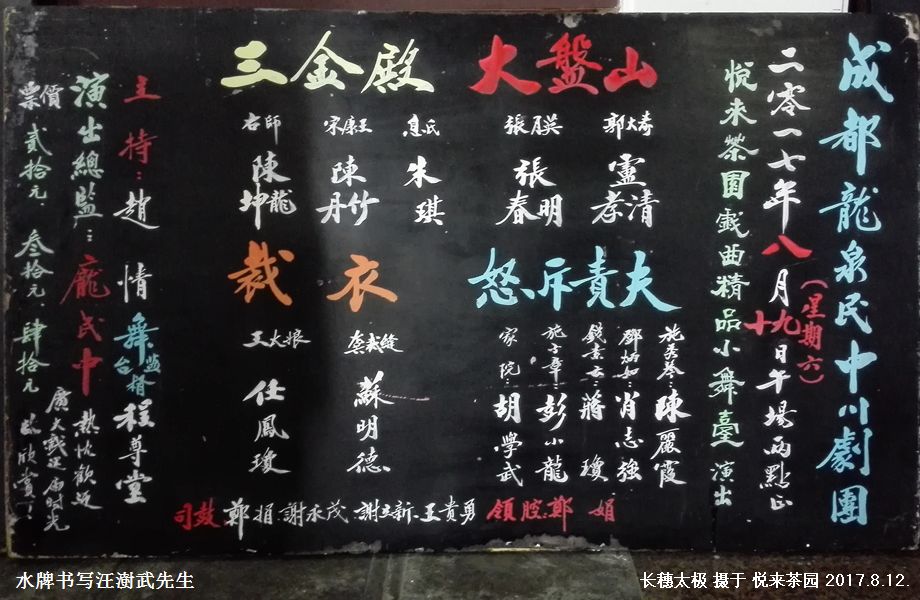 成都龍泉民中川劇團
二零一七年八月十九日午場兩點正
(星期六)
悦来茶园戯曲精品小舞臺演出
大盤山
郭大壽 盧清孝
張春明
三金殿
息氏 朱琪
宋康王 陳竹丹
右師 陳龍坤
怒斥責夫
施芙蓉 陳麗霞
肖志強
蔣瓊
施子章 彭小龍
家院:胡學武
裁衣
龔裁縫 蘇明德
王大娘 任鳳瓊
司鼓:鄭娟:謝永茂、謝立新、王貴勇 領腔:鄭娟
主持:趙情
舞台監督 程尊堂
演出總監:龐民中
熱忱歡迎廣大戲迷
欣賞!
票價 贰拾元、叁拾元、肆拾元
水牌书写汪澍武先生
长穗太极 摄于 悦来茶园 2017.8.12.